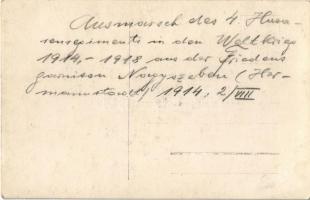 Ausmarsch des 4. Husa-
renregiments in den Weltkrieg
1914 - 1918 aus der Friedens
garnison Nagyszeben (Her-
mannstadt) 1914. 2/VIII